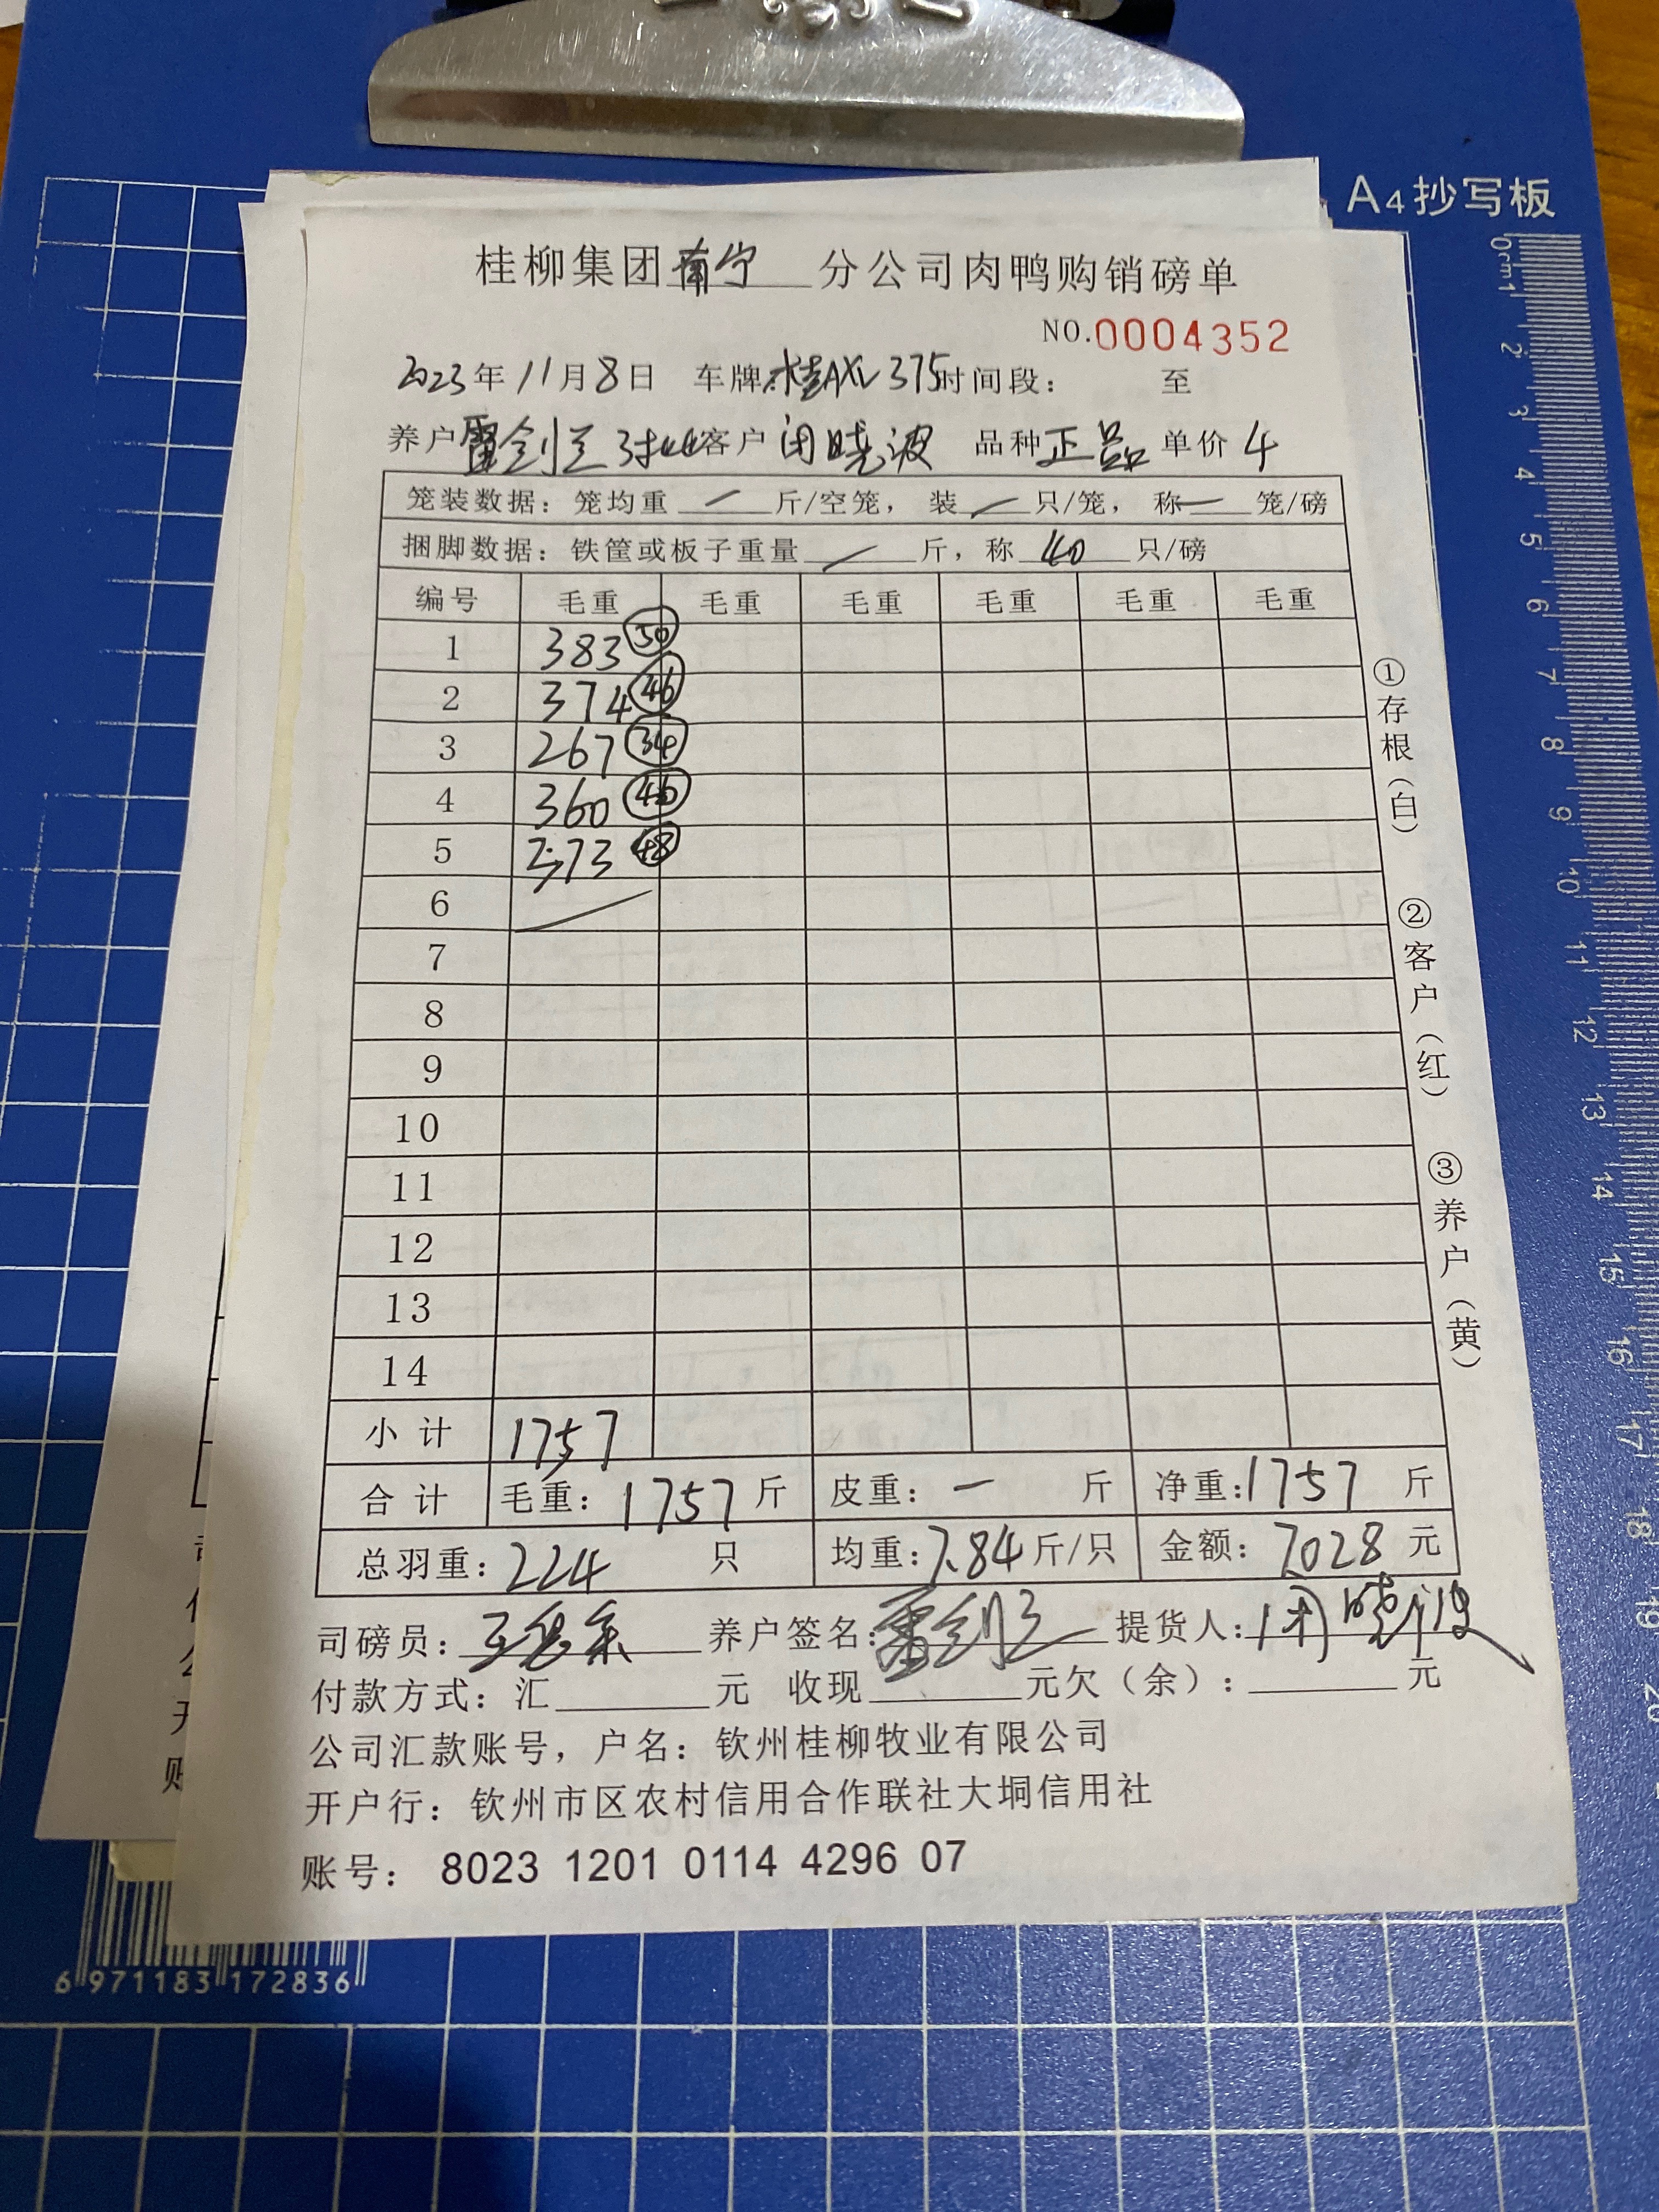 A4抄写板
桂柳集团南宁 分公司肉鸭购销磅单
NO.0004352
2023年11月8日 车牌:桂AXL375时间段: 至
养户雷剑兰3批客户闭晓波 品种正品 单价4
笼装数据:笼均重 — 斤/空笼, 装 — 只/笼, 称 — 笼/磅
捆脚数据:铁筐或板子重量 — 斤,称 40 只/磅
编号 毛重 毛重 毛重 毛重 毛重 毛重
1 383 50
2 374 46
3 267 34
4 360 46
5 373 48
6
7
8
9
10
11
12
13
14
小计 1757
合计 毛重:1757斤 皮重:— 斤 净重:1757 斤
总羽重:224 只 均重:7.84斤/只 金额:7028元
司磅员: 养户签名:雷剑兰 提货人:闭晓波
付款方式:汇 元 收现 元欠(余): 元
公司汇款账号,户名:钦州桂柳牧业有限公司
开户行:钦州市区农村信用合作联社大垌信用社
账号: 8023 1201 0114 4296 07
①存根(白) ②客户(红) ③养户(黄)
0cm1 2 3 4 5 6 7 8 9 10 11 12 13 14 15 16 17 18 19 20
6 971183 172836